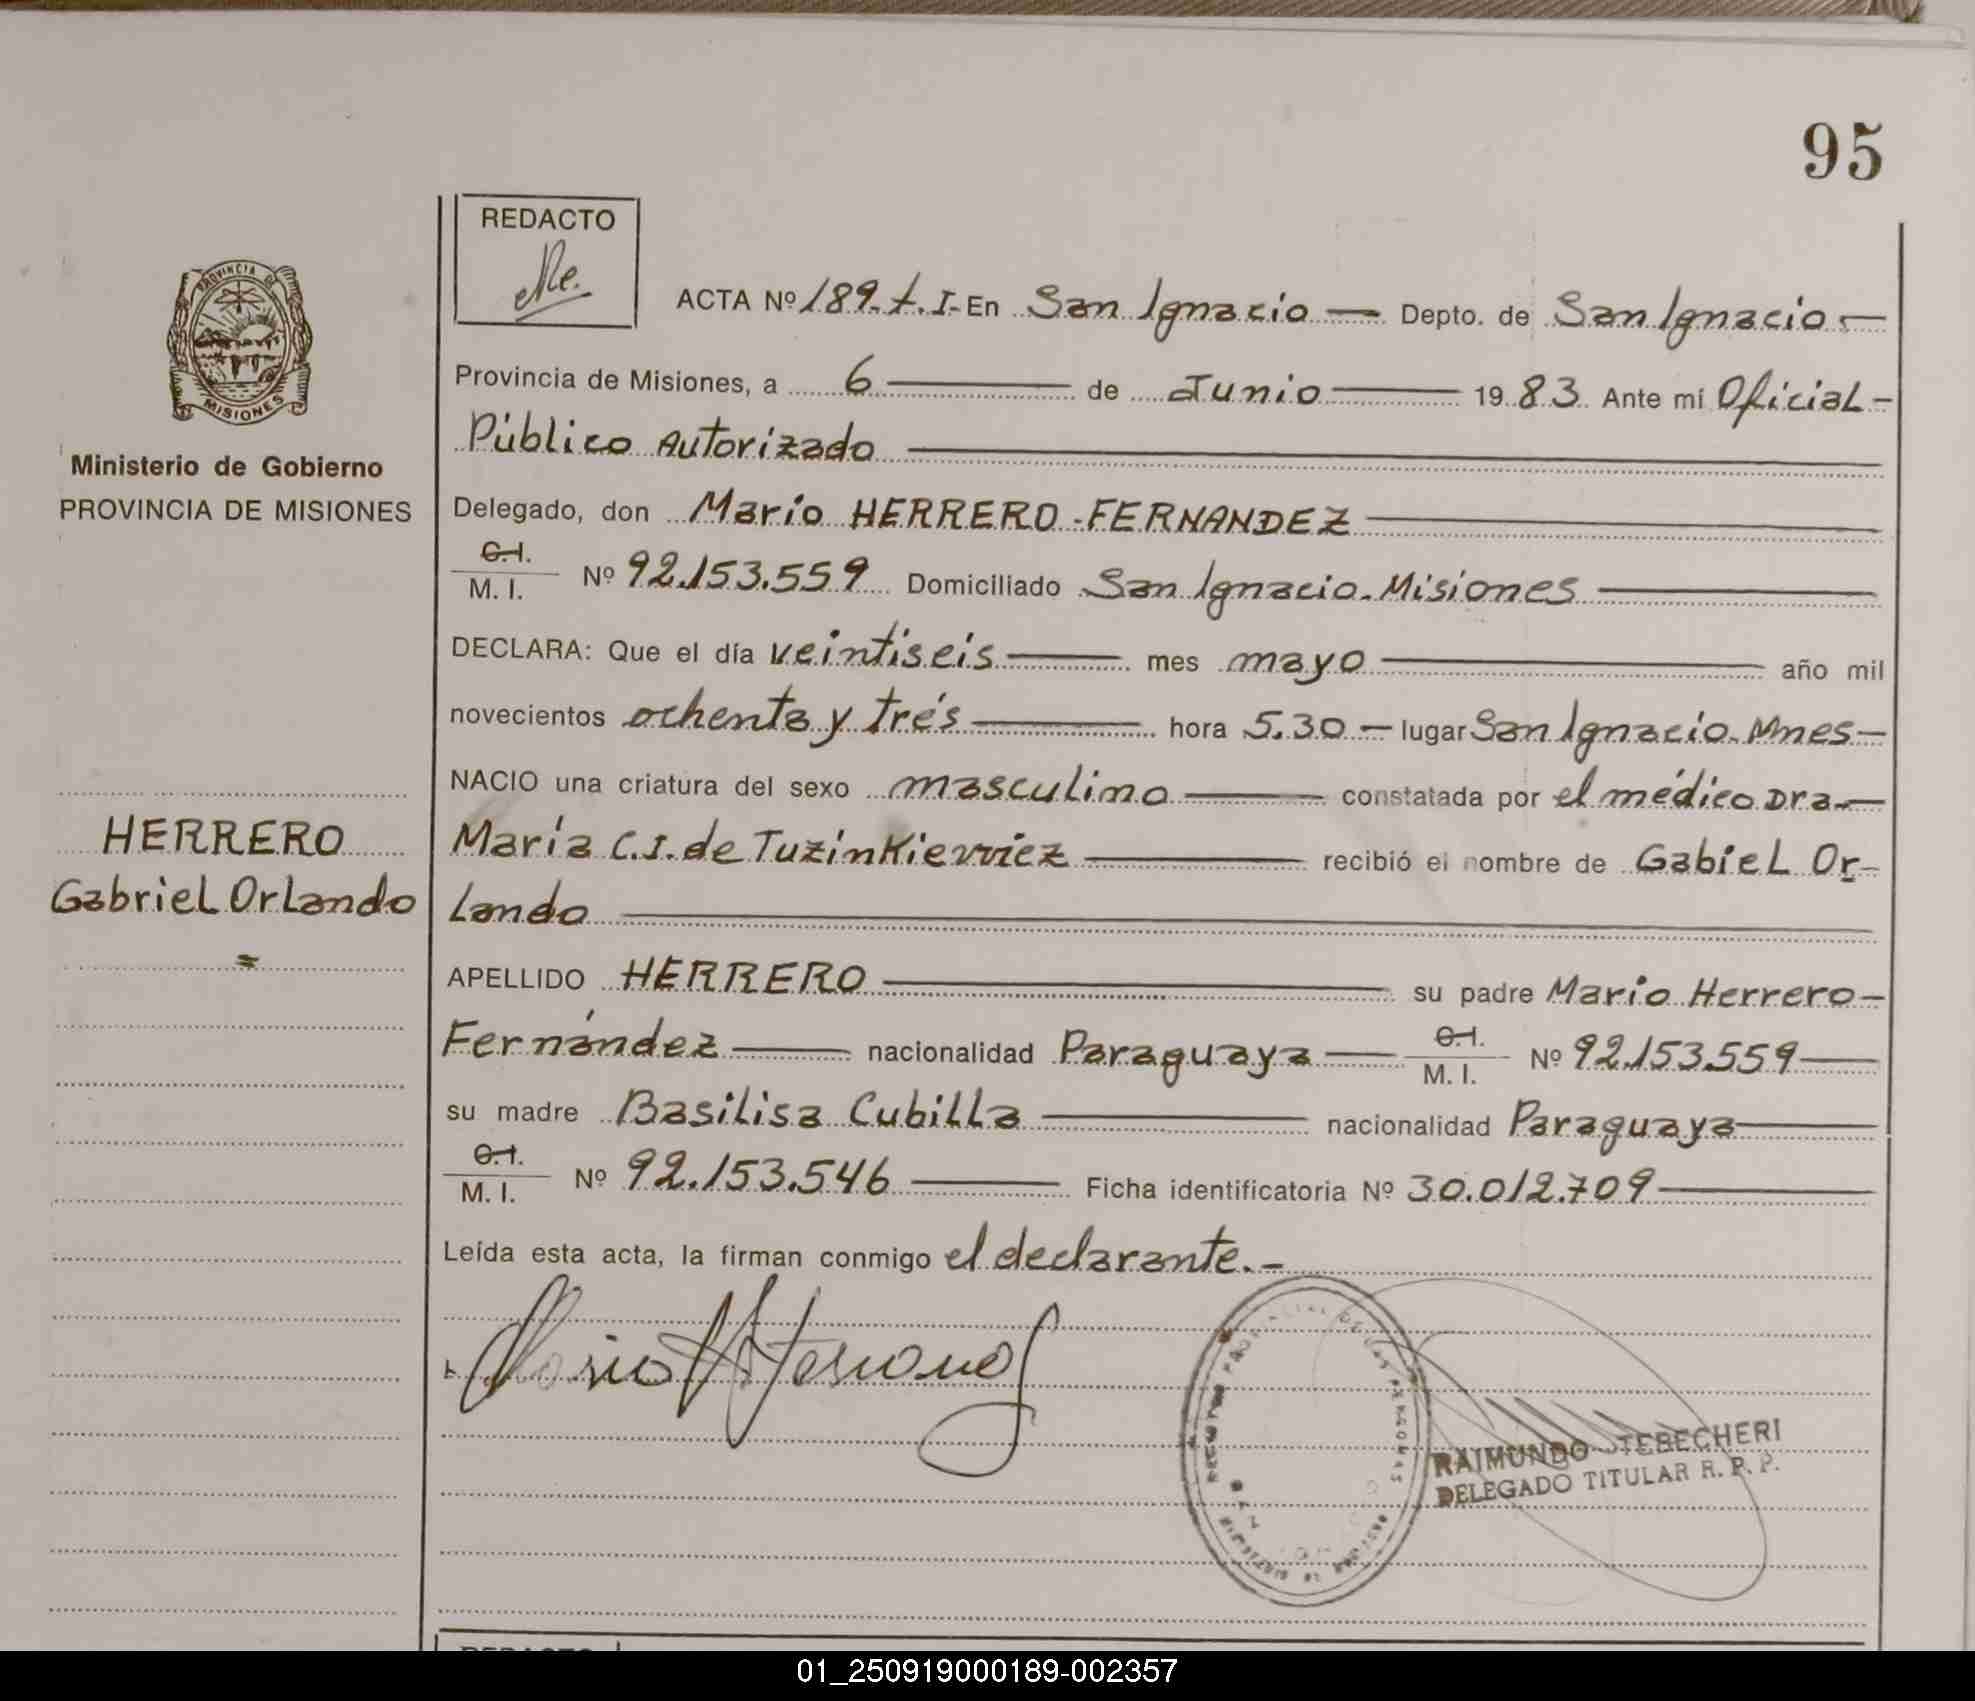 95
REDACTO
Me.
PROVINCIA DE
MISIONES
Ministerio de Gobierno
PROVINCIA DE MISIONES
HERRERO
Gabriel Orlando
=
ACTA Nº 189.t.I- En San Ignacio — Depto. de San Ignacio —
Provincia de Misiones, a 6 — de Junio — 1983 Ante mí Oficial -
Público Autorizado —
Delegado, don Mario HERRERO-FERNANDEZ —
C.I.
M. I. Nº 92.153.559 Domiciliado San Ignacio-Misiones —
DECLARA: Que el día veintiseis — mes mayo — año mil
novecientos ochenta y trés — hora 5.30 — lugar San Ignacio-Mnes —
NACIO una criatura del sexo masculino — constatada por el médico Dra —
María C.I. de TuzinKievviez — recibió el nombre de Gabiel Or-
lando —
APELLIDO HERRERO — su padre Mario Herrero -
Fernández — nacionalidad Paraguaya — C.I.
M. I. Nº 92.153.559 —
su madre Basilisa Cubilla — nacionalidad Paraguaya —
C.I.
M. I. Nº 92.153.546 — Ficha identificatoria Nº 30.012.709 —
Leída esta acta, la firman conmigo el declarante.-
RAIMUNDO TEBECHERI
DELEGADO TITULAR R. P. P.
01_250919000189-002357